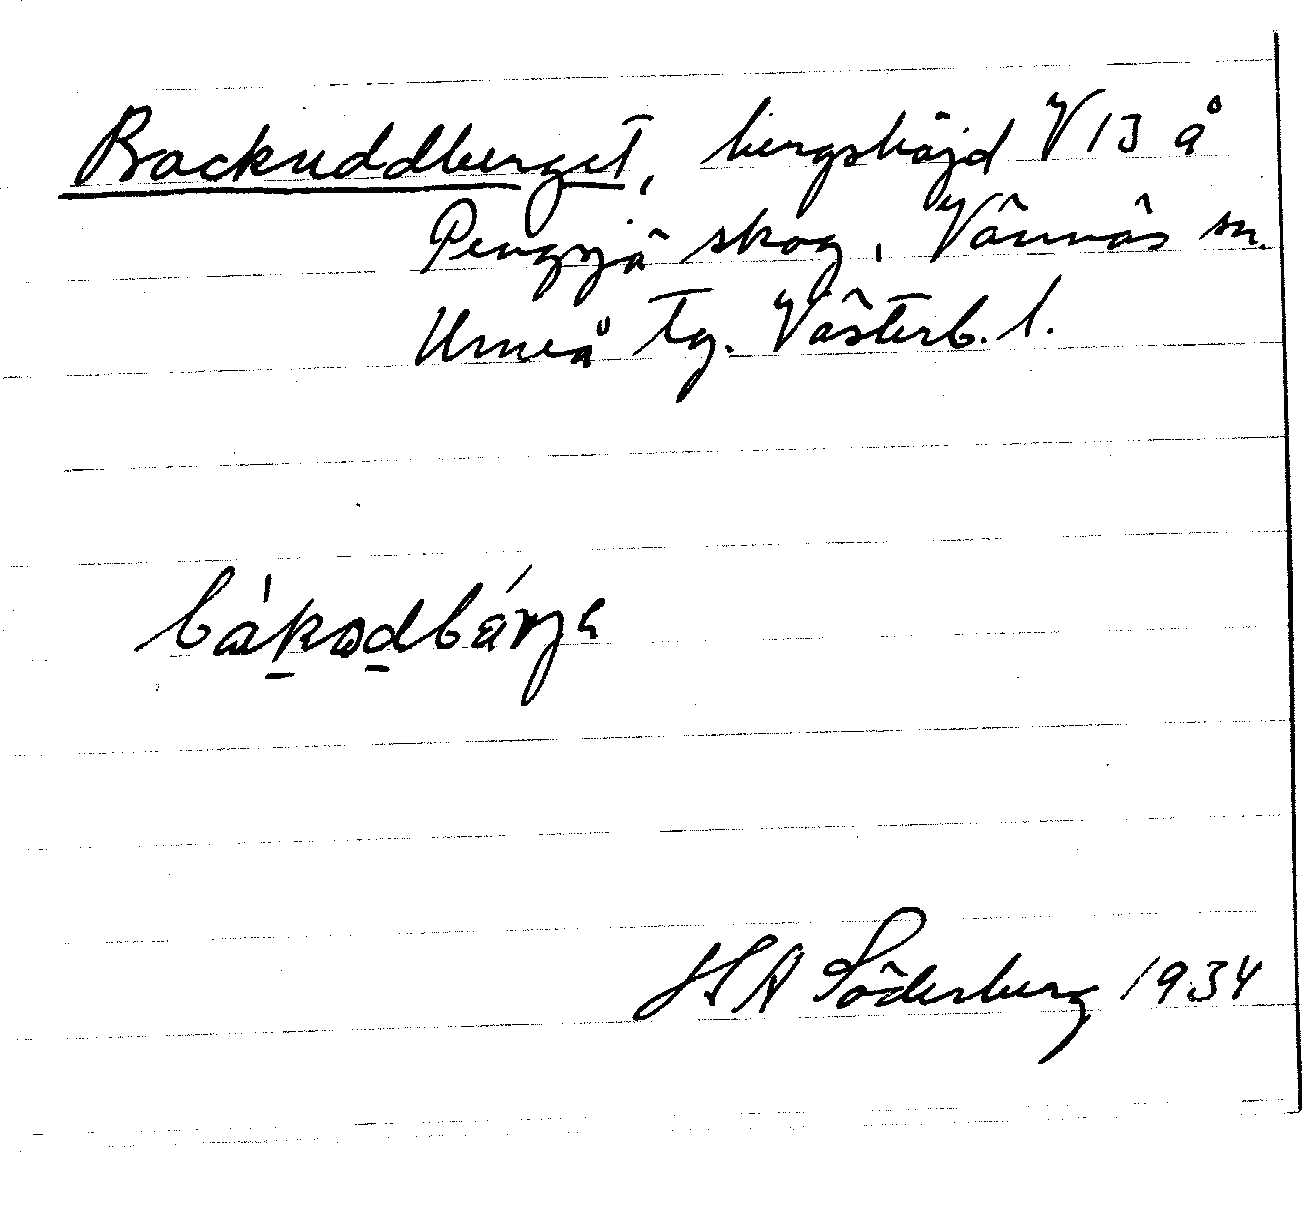 Backuddberget, bergshöjd V 13 å
Pengsjö skog, Vännäs sn.
Umeå tg. Västerb. l.
H A Söderberg 1934